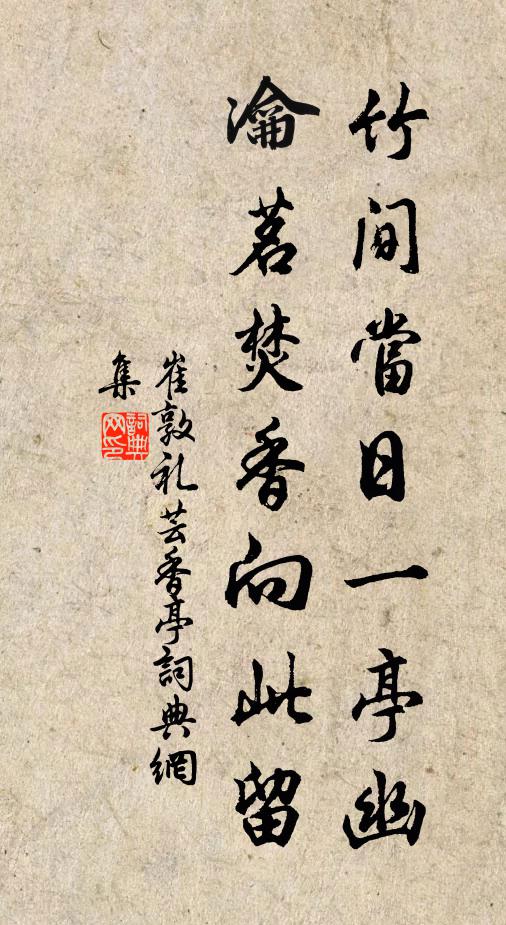 竹间當日一亭幽
瀹茗焚香向此留
崔敦礼芸香亭詞典網
集
詞典
网印